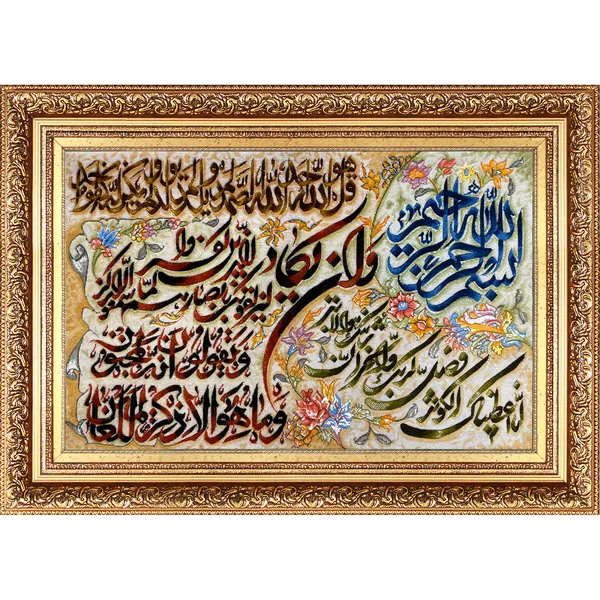 بسم الله الرحمن الرحیم
قل هو الله احد الله الصمد لم یلد و لم یولد و لم یکن له کفوا احد
وان یکاد
الذین کفروا
لیزلقونک بابصارهم لما سمعوا الذکر
و یقولون انه لمجنون
و ما هو الا ذکر للعالمین
انا اعطیناک الکوثر
فصل لربک وانحر ان
شانئک هو الابتر